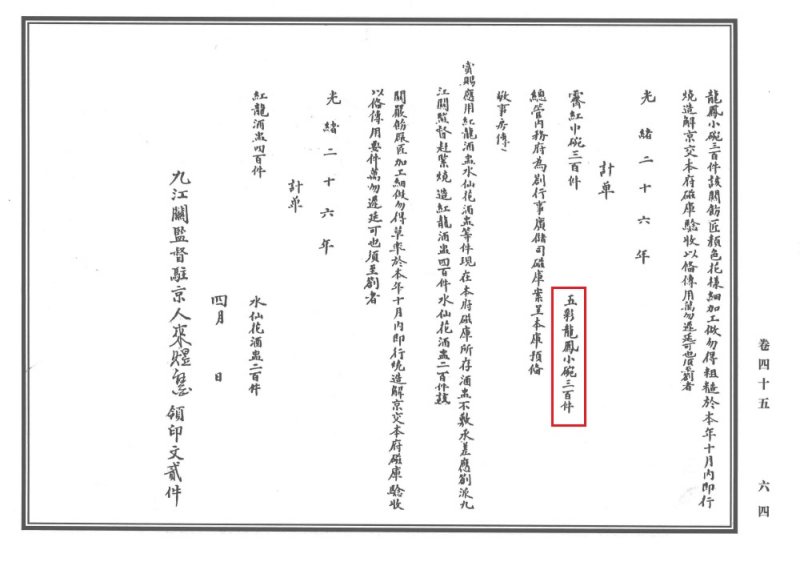 龍鳳小碗三百件該關飭匠顏色花樣細加工做勿得粗糙於本年十月內即行
燒造解京交本府磁庫驗收以俻傳用萬勿遲延可也須至劄者
光緒二十六年
計單
霽紅中碗三百件
五彩龍鳳小碗三百件
總管內務府為劄行事廣儲司磁庫案呈本庫預俻
敬事房傳、
賞賜應用紅龍酒盅水仙花酒盅等件現在本府磁庫所存酒盅不敷承差應劄派九
江關監督赶緊燒造紅龍酒盅四百件水仙花酒盅二百件該
關嚴飭厰匠加工細做勿得草率於本年十月內即行燒造解京交本府磁庫驗收
以俻傳用要件萬勿遲延可也須至劄者
光緒二十六年
計單
紅龍酒盅四百件
水仙花酒盅二百件
四月 日
九江關監督駐京人 領印文貳件
卷四十五
六四